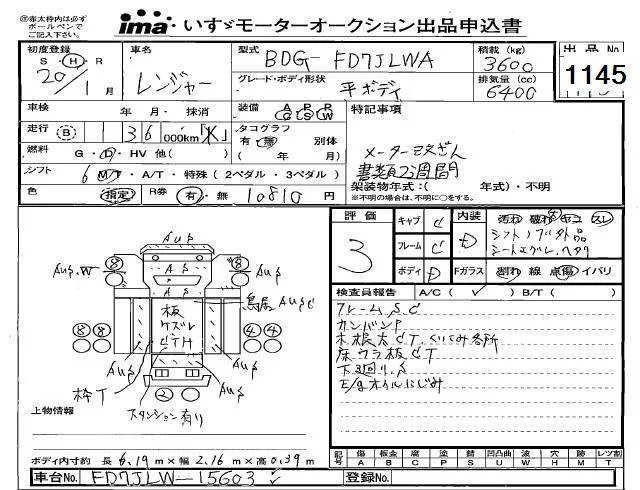 ※赤太枠内は必ず
ボールペンで
ご記入下さい。
ima いすゞモーターオークション出品申込書
初度登録 車名 型式 BDG-FD7JLWA 積載 (kg) 3600 出品No.
S・H・R 20/1月 レンジャー グレード・ボディ形状 平ボディ 排気量 (cc) 6400 1145
車検 年 月・抹消 装備 A/G P/S P/W 特記事項
走行 B 136 000km「K」 タコグラフ 有・無 別体 メーター改ざん
燃料 G・D・HV 他( ) ( 年 月) 書類2週間
シフト 6 MT・A/T・特殊(2ペダル・3ペダル) 架装物年式:( 年式)・不明
色 指定 R券 有・無 10810 円 ※不明の場合は、不明に○をする。
評価 3
キャブ C 内装 D 汚れ 破れ キコ スレ
フレーム C シフトノブ外品
シートエグレ、ヘタリ
ボディ D Fガラス 割れ 線 点傷 イバリ
検査員報告 A/C( ✓ ) B/T( )
フレームS.C
カンバンP
木根太CT.くいこみ各所
床ウラ板CT
下廻り.S
E/gオイルにじみ
AUS
AUS
AS
AS
AUS.W
AUS
鳥居AUSC
板
ケズレ
CTH
8 8
8 8
4 4
2
AUS
AUS
AUS
枠T
スタンション有り
上物情報
ボディ内寸約 長 6.19m×幅 2.16m×高 0.39m
記号 傷 A 板金 B 腐 C 塗 P 錆 S 凹凸曲 U 波 W 穴 H 跡 M レツ割 T
車台No. FD7JLW-15603 ✓ 登録No.